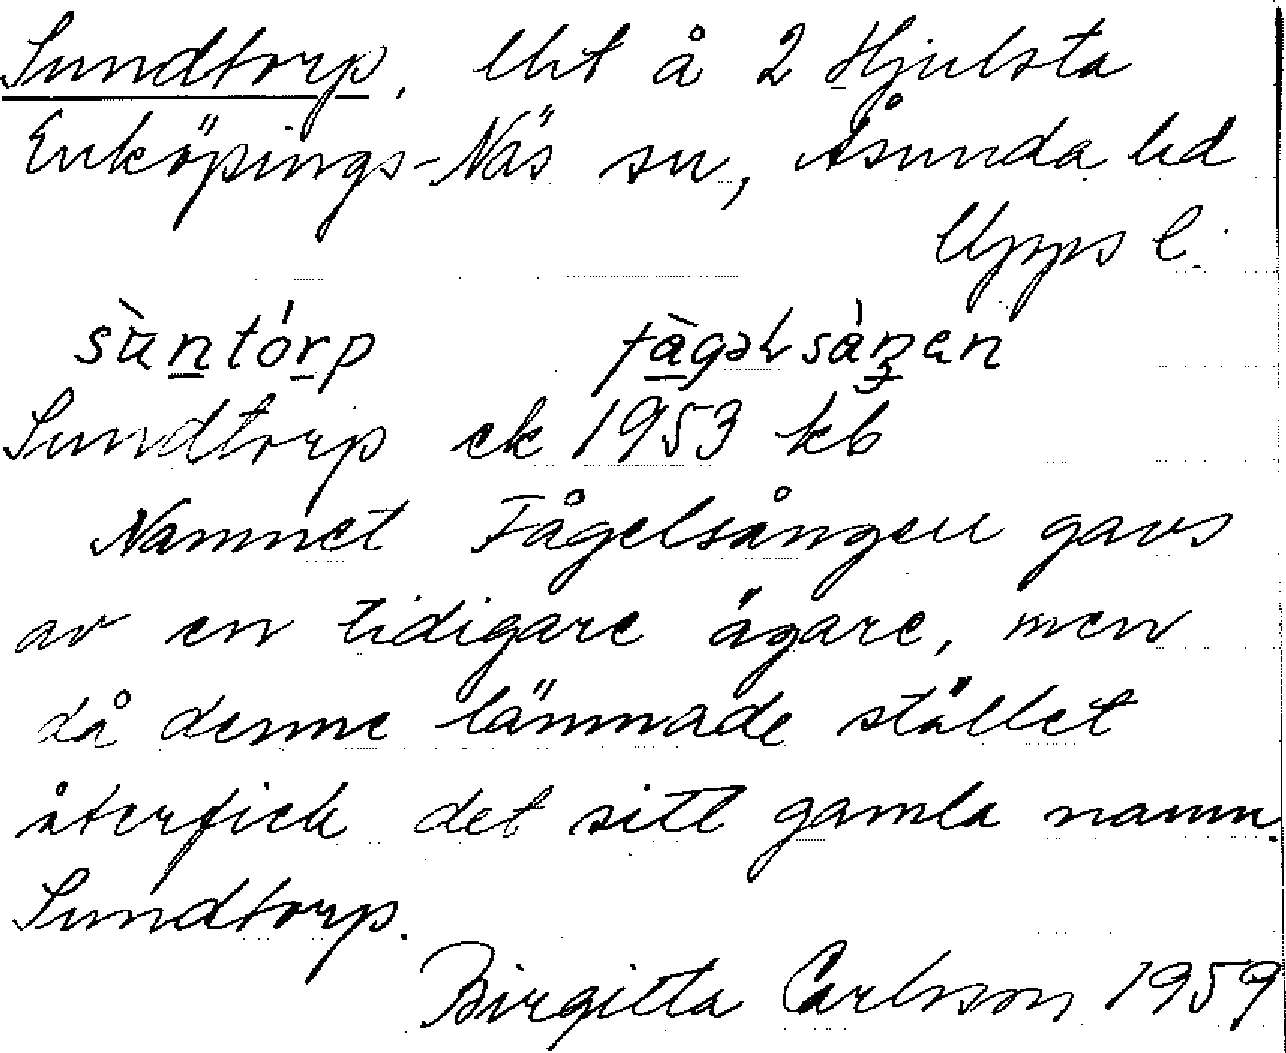 Sundtorp, lht å 2 Hjulsta
Enköpings-Näs sn, Åsunda hd
Upps l.
sùntórp fàgəlsàŋen
Sundtorp ek 1953 kb
Namnet Fågelsången gavs
av en tidigare ägare, men
då denne lämnade stället
återfick det sitt gamla namn.
Sundtorp.
Birgitta Carlsson 1959